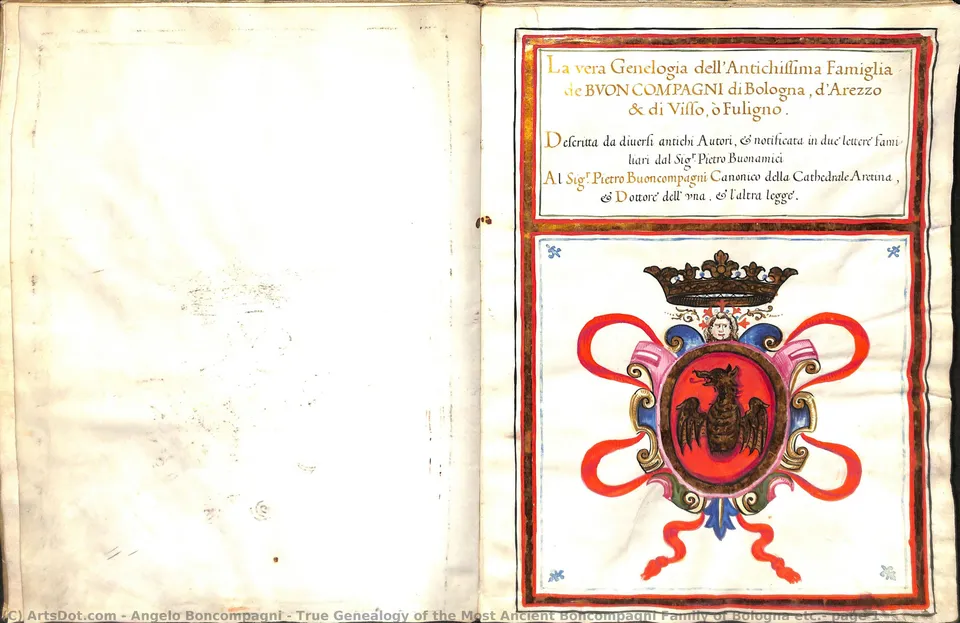 La vera Genelogia dell'Antichissima Famiglia
de BVON COMPAGNI di Bologna, d'Arezzo
& di Visso, ò Fuligno.
Descritta da diuersi antichi Autori, & notificata in due lettere fami-
liari dal Sigr. Pietro Buonamici
Al Sigr. Pietro Buoncompagni Canonico della Cathedrale Aretina,
& Dottore dell' vna, & l'altra legge.
(C) ArtsDot.com - Angelo Boncompagni - True Genealogy of the Most Ancient Boncompagni Family of Bologna etc.- page 1